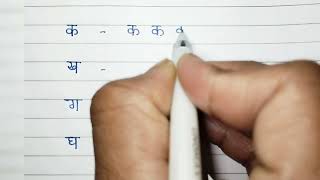 क - क क
ख -
ग
घ